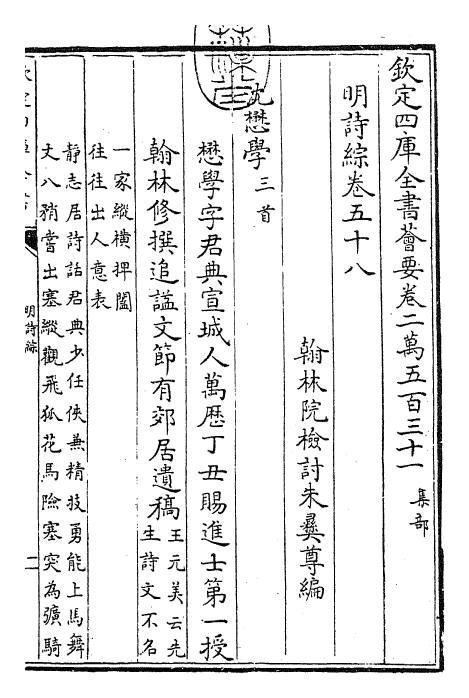 欽定四庫全書薈要卷二萬五百三十一 集部
明詩綜卷五十八
翰林院檢討朱彝尊編
沈懋學三首
懋學字君典宣城人萬厯丁丑賜進士第一授
翰林修撰追諡文節有郊居遺稿
王元美云先
生詩文不名
一家縱横捭闔
往往出人意表
静志居詩話君典少任俠兼精技勇能上馬舞
丈八矟嘗出塞縱觀飛狐花馬險塞突為彍騎
明詩綜